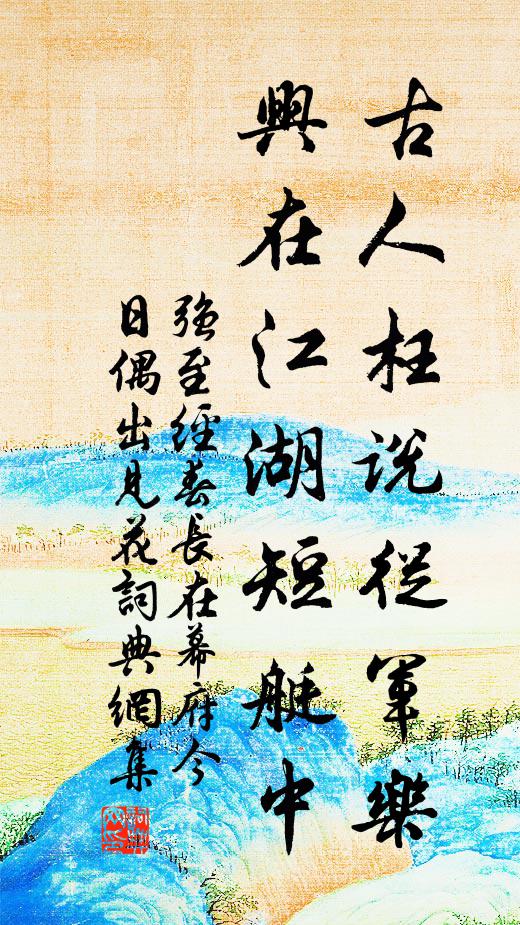 古人枉說從軍樂
興在江湖短艇中
強至經春長在幕府今
日偶出見花詞典網集